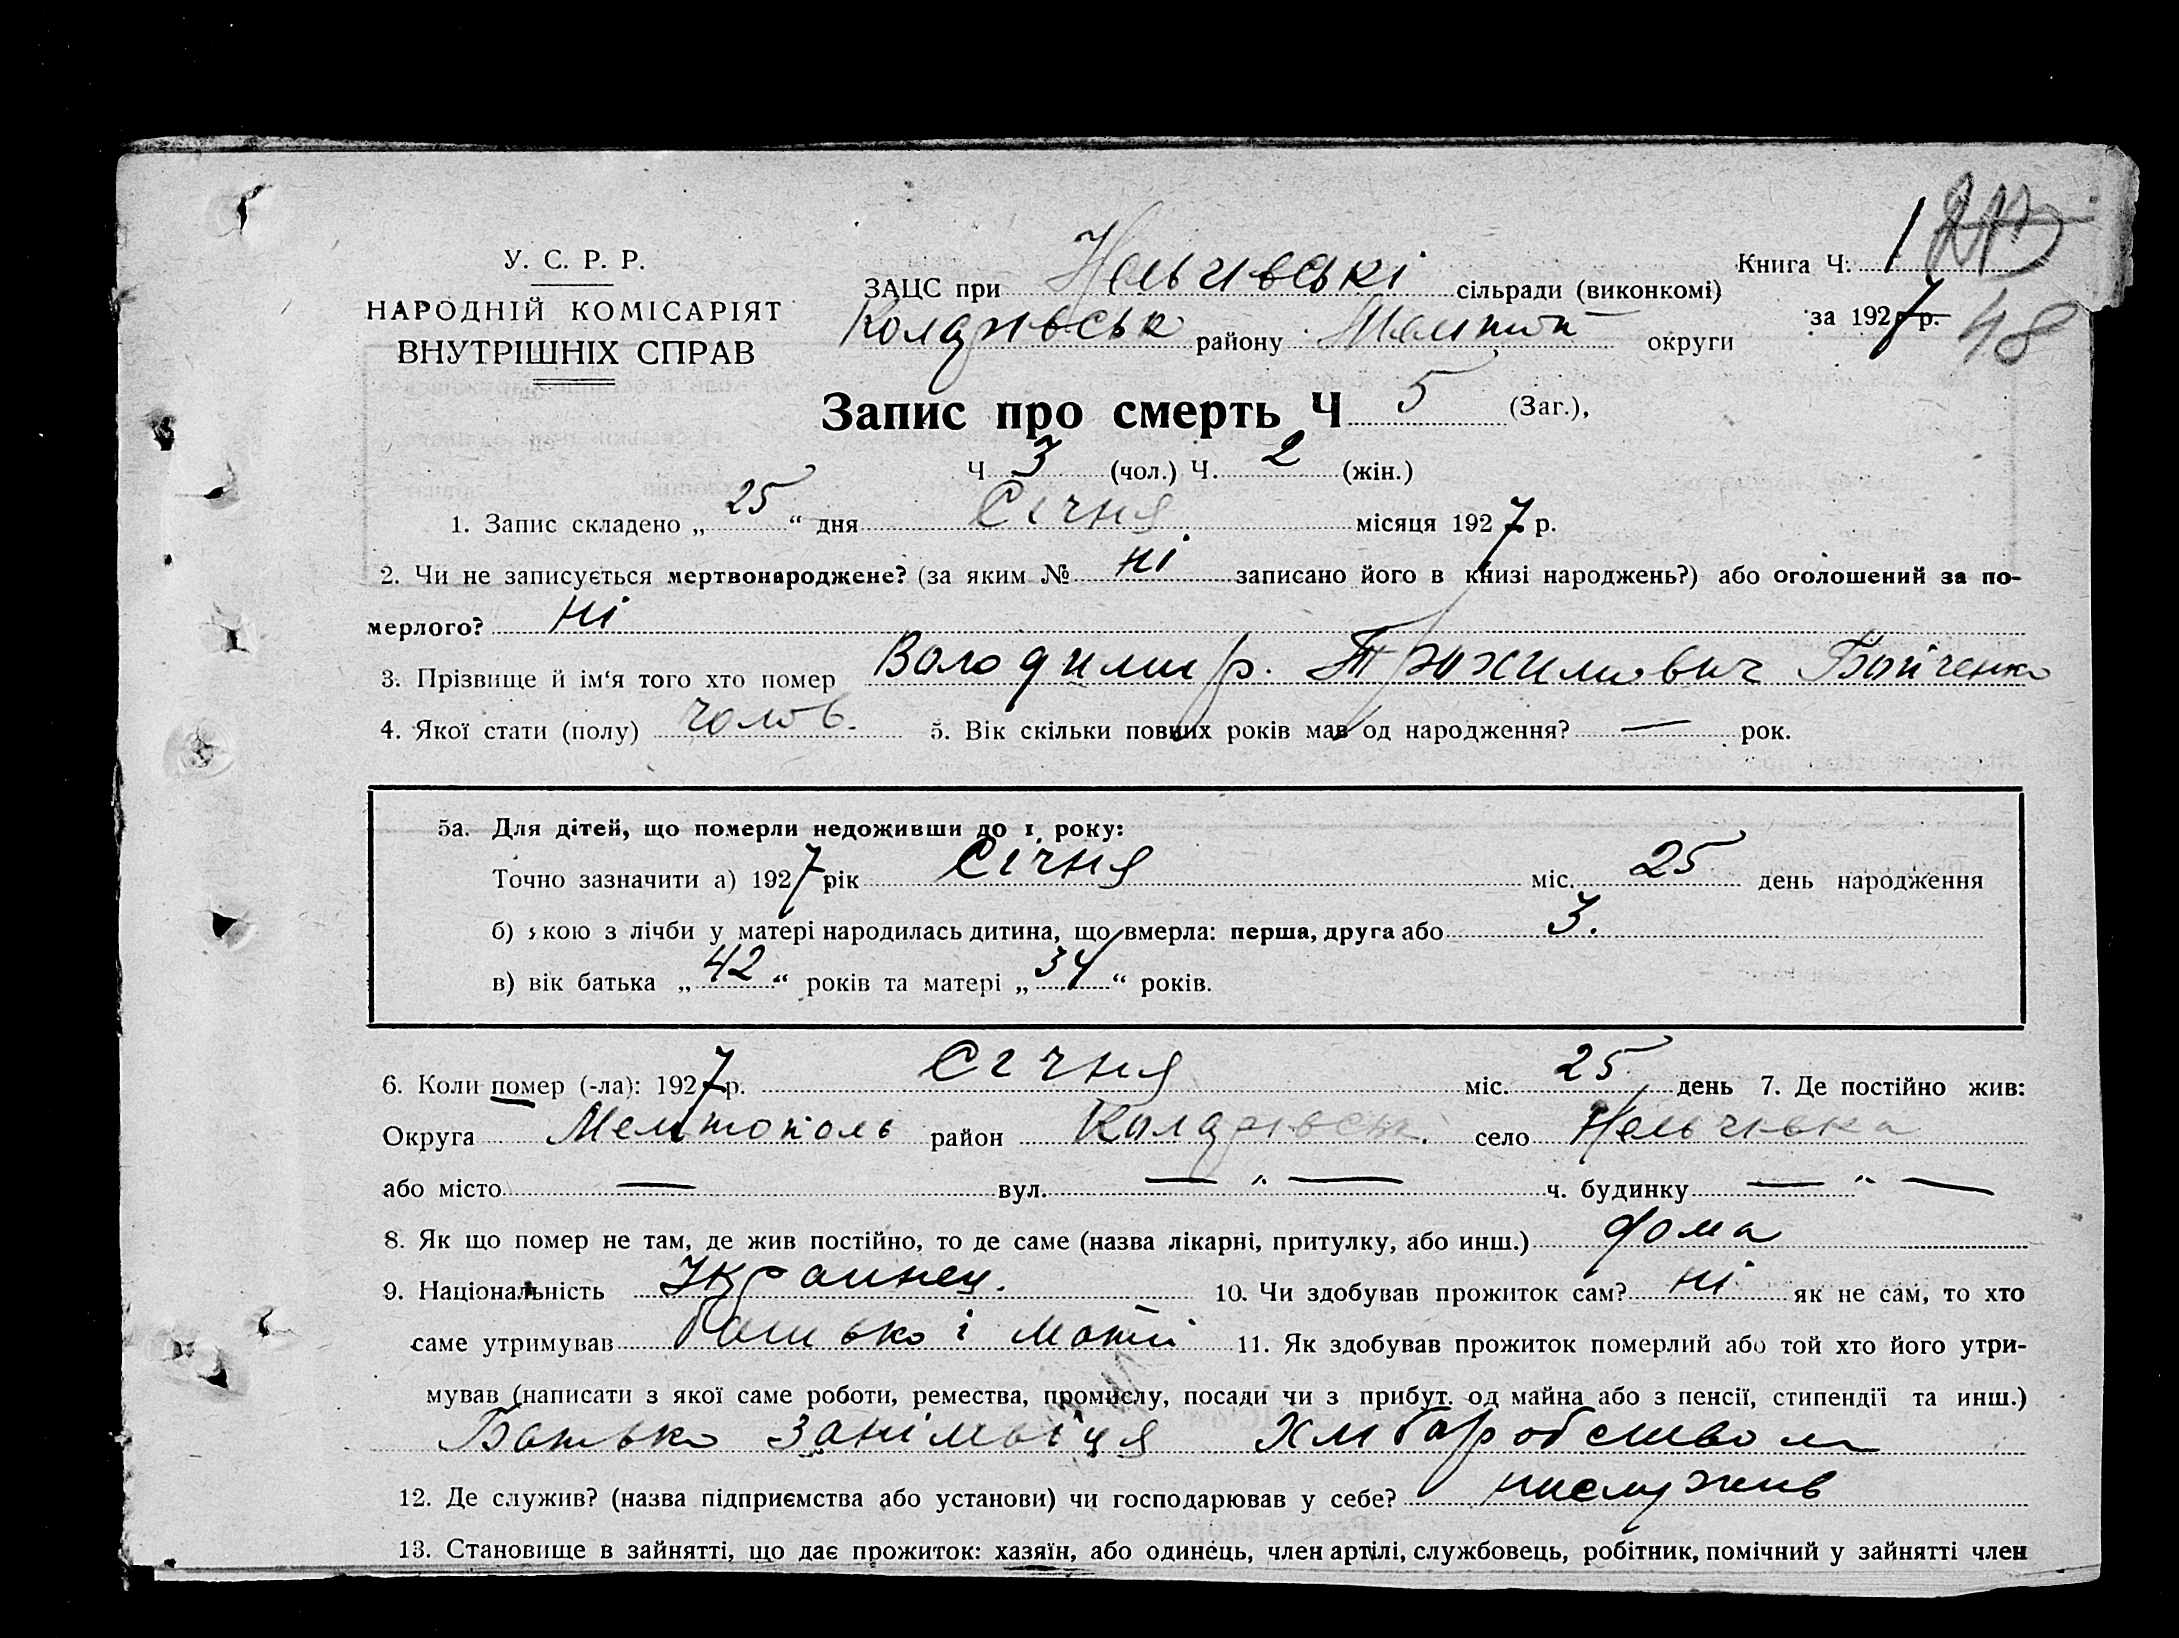 У. С. Р. Р.
НАРОДНІЙ КОМІСАРІЯТ
ВНУТРІШНІХ СПРАВ
Книга Ч. 1
за 1927 р. 48
ЗАЦС при Нельгівські сільради (виконкомі)
району Мелитоп округи
Запис про смерть Ч 5 (Заг.),
Ч 3 (чол.) Ч. 2 (жін.)
1. Запис складено „ 25 “ дня Січня місяця 1927 р.
2. Чи не записується мертвонароджене? (за яким № ні записано його в книзі народжень?) або оголошений за по-
мерлого? ні
3. Прізвище й ім‘я того хто помер Володимир. Трохимович Бойченко
4. Якої стати (полу) чолов. 5. Вік скільки повних років мав од народження? — рок.
5а. Для дітей, що померли недоживши до 1 року:
Точно зазначити а) 1927 рік Січня міс. 25 день народження
б) якою з лічби у матері народилась дитина, що вмерла: перша, друга або 3.
в) вік батька „ 42 “ років та матері „ 34 “ років.
6. Коли помер (-ла): 1927 р. Січня міс. 25 день 7. Де постійно жив:
Округа Мелітополь район село
або місто — вул. — „ — ч. будинку — „ —
8. Як що помер не там, де жив постійно, то де саме (назва лікарні, притулку, або инш.) дома
9. Національність Украинец. 10. Чи здобував прожиток сам? ні як не сам, то хто
саме утримував батько і мати 11. Як здобував прожиток померлий або той хто його утри-
мував (написати з якої саме роботи, ремества, промислу, посади чи з прибут. од майна або з пенсії, стипендії та инш.)
Батько занімаіця Хліборобством
12. Де служив? (назва підприємства або установи) чи господарював у себе? нислужив
13. Становище в зайнятті, що дає прожиток: хазяїн, або одинець, член артілі, службовець, робітник, помічний у зайнятті член